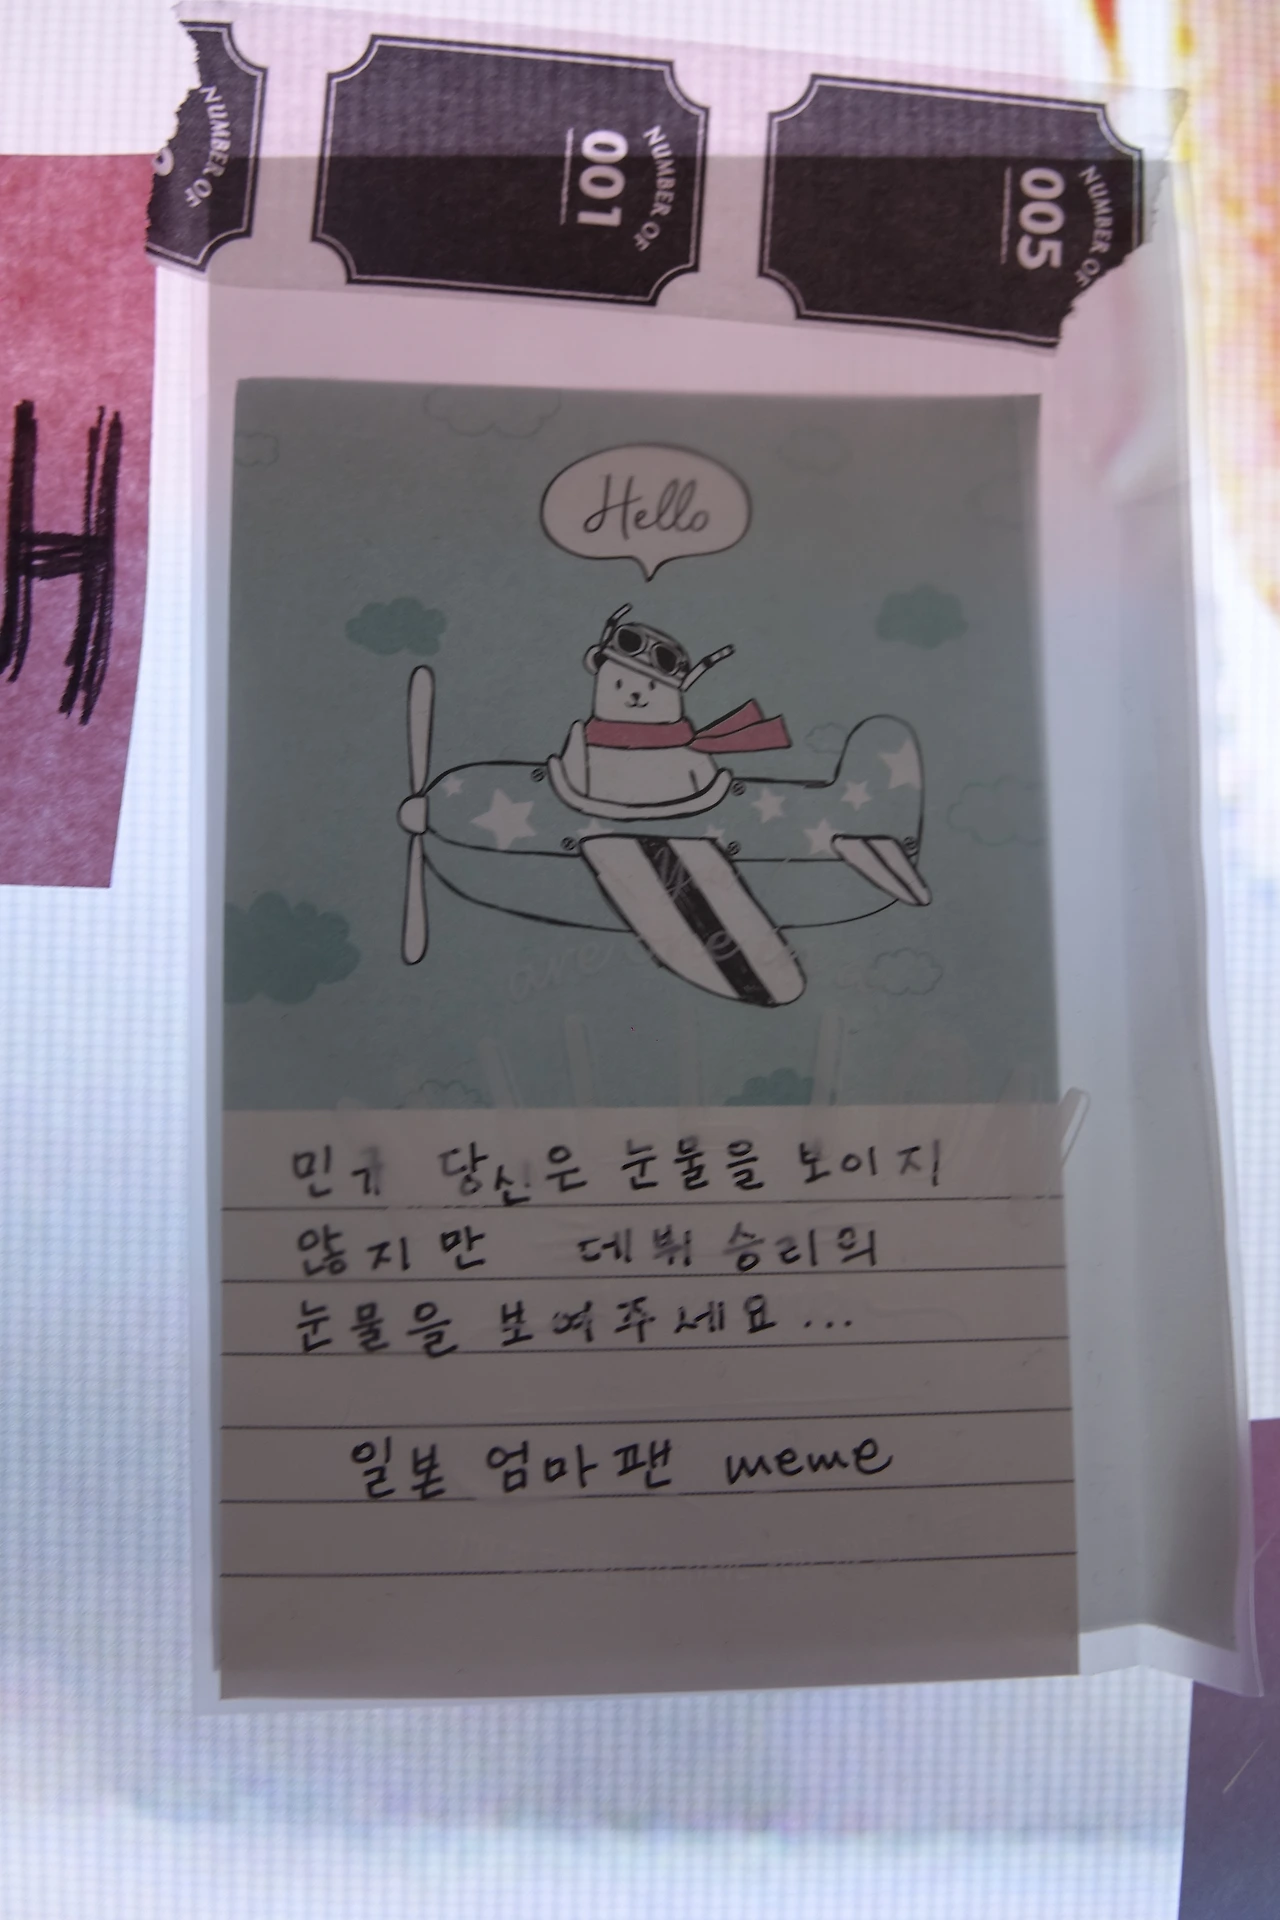 NUMBER OF
NUMBER OF
001
NUMBER OF
005
H
Hello
민규 당신은 눈물을 보이지
않지만 데뷔 승리의
눈물을 보여주세요...
일본 엄마팬 meme